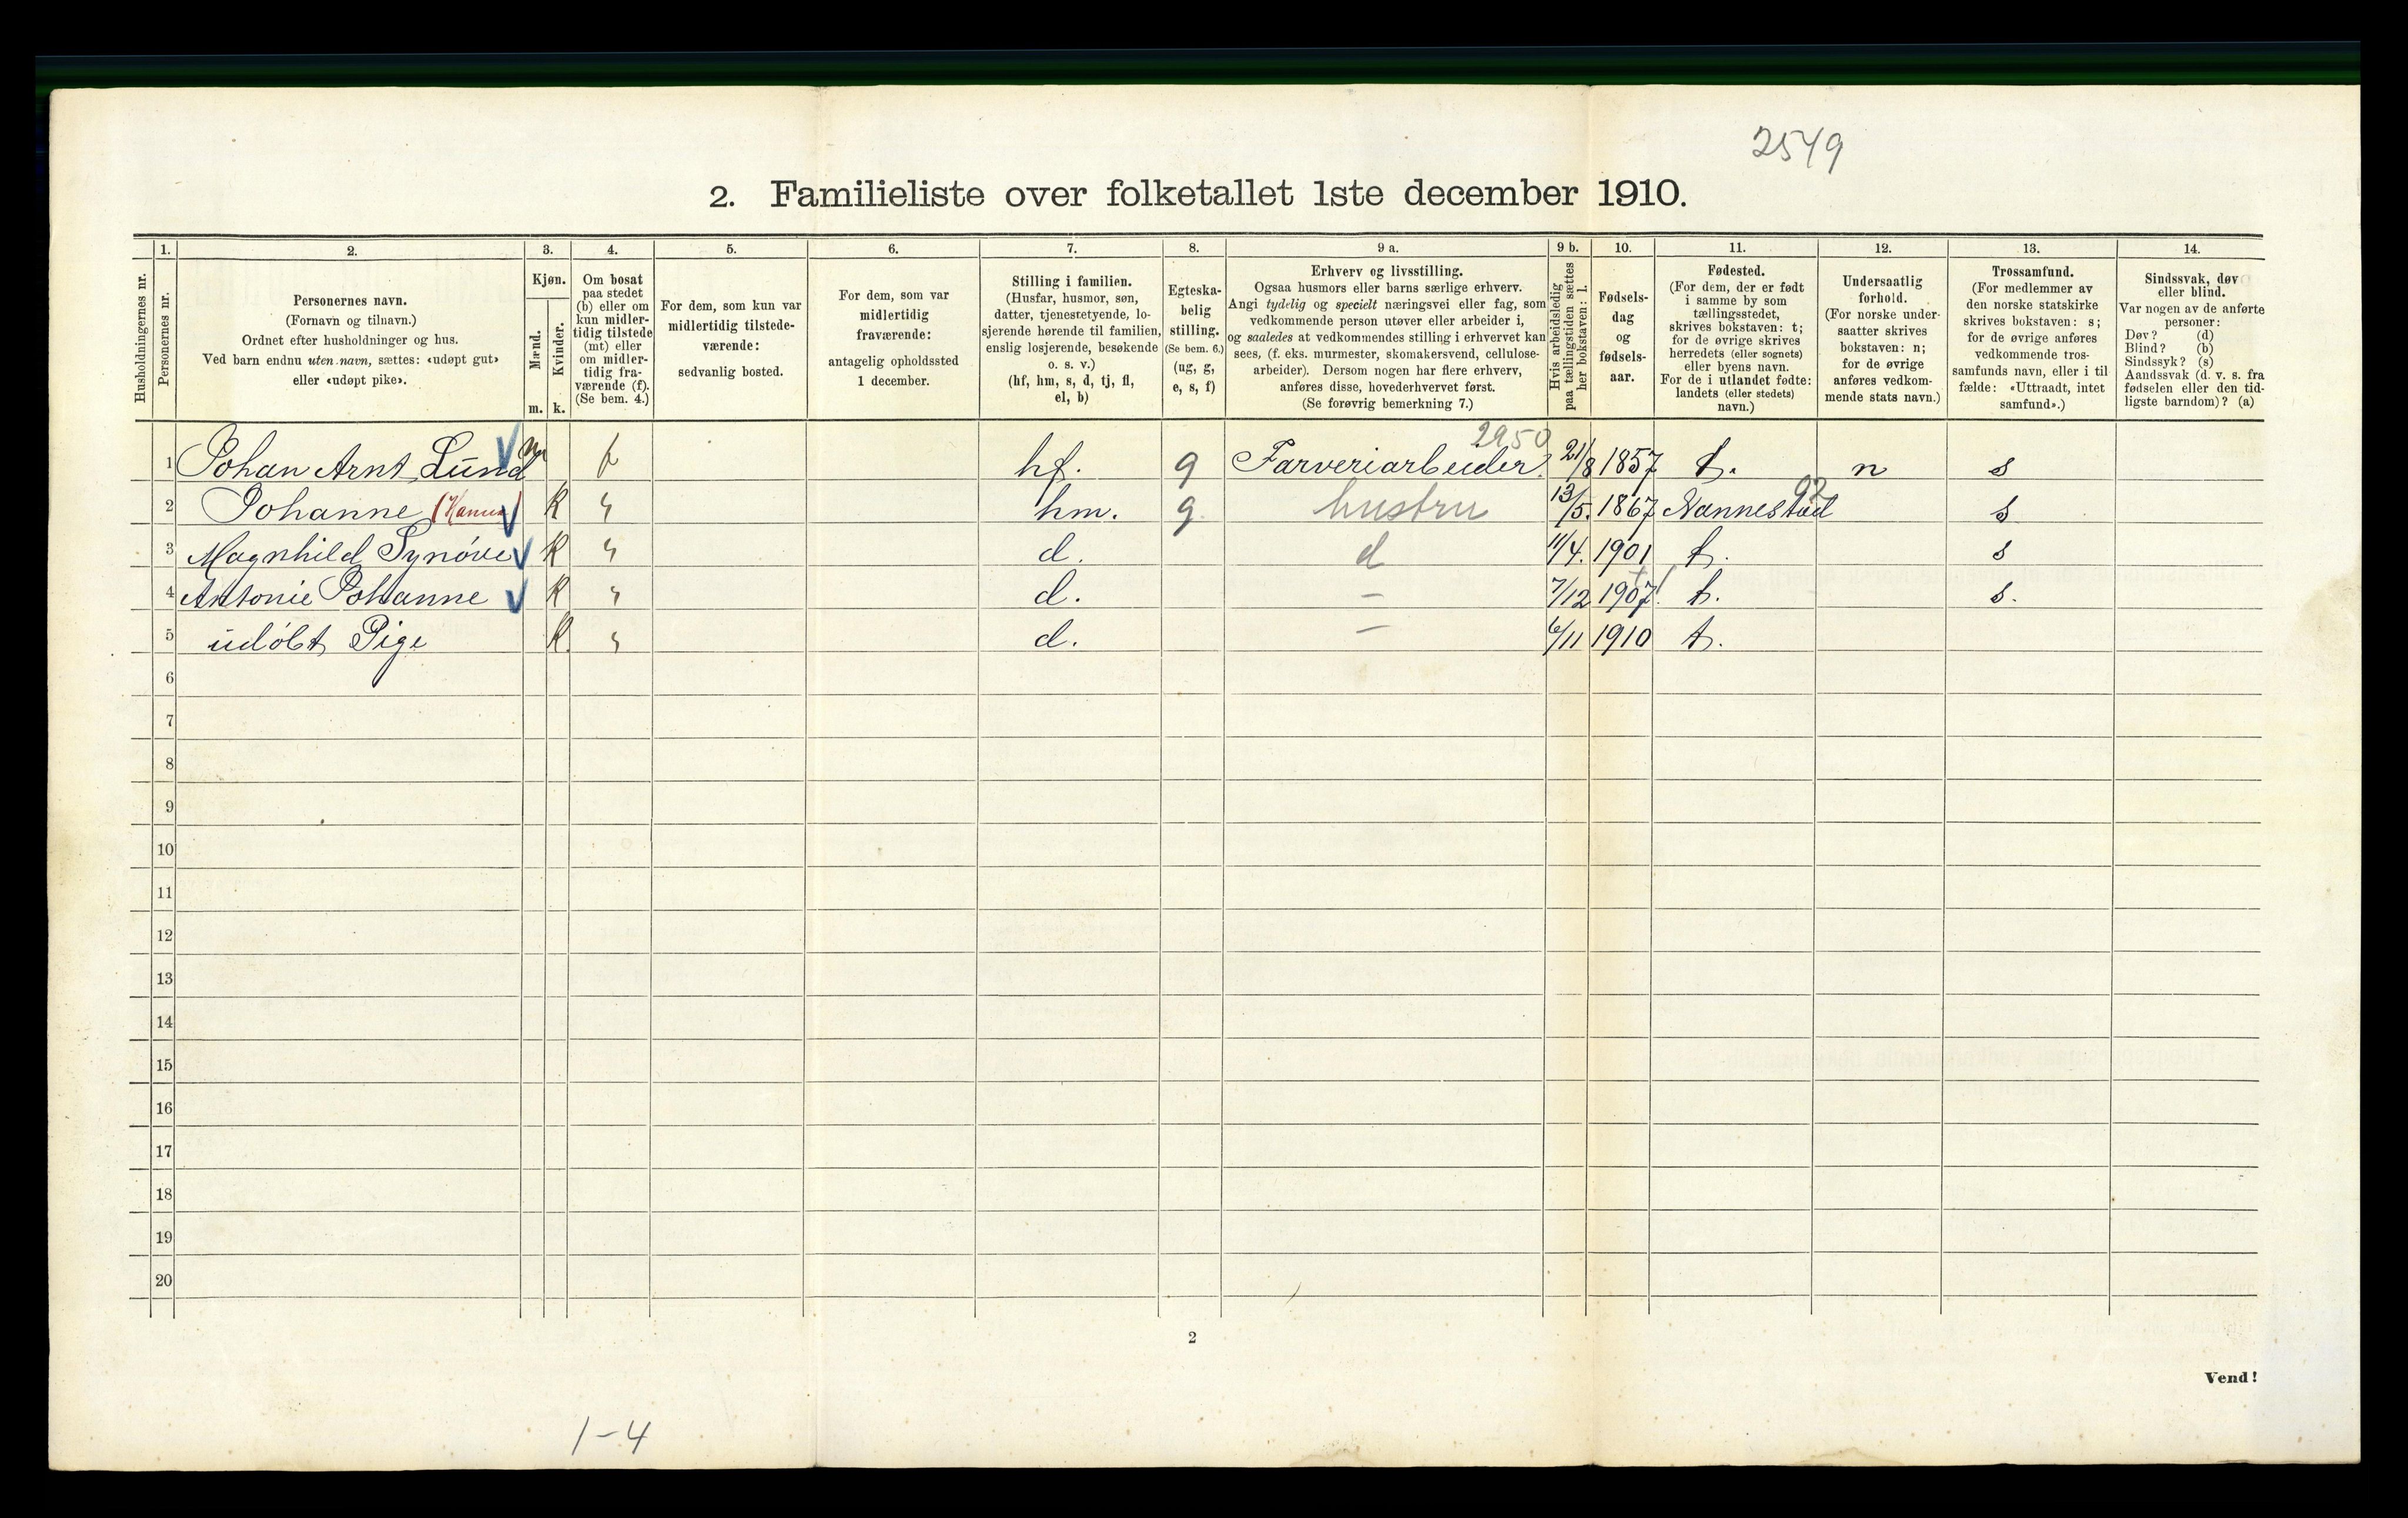 2549
2. Familieliste over folketallet 1ste december 1910.
1. 2. 3. 4. 5. 6. 7. 8. 9 a. 9 b. 10. 11. 12. 13. 14.
Husholdningernes nr.
Personernes nr.
Personernes navn.
(Fornavn og tilnavn.)
Ordnet efter husholdninger og hus.
Ved barn endnu uten navn, sættes: «udøpt gut»
eller «udøpt pike».
Kjøn.
Mænd.
Kvinder.
m. k.
Om bosat
paa stedet
(b) eller om
kun midler-
tidig tilstede
(mt) eller
om midler-
tidig fra-
værende (f).
(Se bem. 4.)
For dem, som kun var
midlertidig tilstede-
værende:
sedvanlig bosted.
For dem, som var
midlertidig
fraværende:
antagelig opholdssted
1 december.
Stilling i familien.
(Husfar, husmor, søn,
datter, tjenestetyende, lo-
sjerende hørende til familien,
enslig losjerende, besøkende
o. s. v.)
(hf, hm, s, d, tj, fl,
el, b)
Egteska-
belig
stilling.
(Se bem. 6.)
(ug, g,
e, s, f)
Erhverv og livsstilling.
Ogsaa husmors eller barns særlige erhverv.
Angi tydelig og specielt næringsvei eller fag, som
vedkommende person utøver eller arbeider i,
og saaledes at vedkommendes stilling i erhvervet kan
sees, (f. eks. murmester, skomakersvend, cellulose-
arbeider). Dersom nogen har flere erhverv,
anføres disse, hovederhvervet først.
(Se forøvrig bemerkning 7.)
Hvis arbeidsledig
paa tællingstiden sættes
her bokstaven: l.
Fødsels-
dag
og
fødsels-
aar.
Fødested.
(For dem, der er født
i samme by som
tællingsstedet,
skrives bokstaven: t;
for de øvrige skrives
herredets (eller sognets)
eller byens navn.
For de i utlandet fødte:
landets (eller stedets)
navn.)
Undersaatlig
forhold.
(For norske under-
saatter skrives
bokstaven: n;
for de øvrige
anføres vedkom-
mende stats navn.)
Trossamfund.
(For medlemmer av
den norske statskirke
skrives bokstaven: s;
for de øvrige anføres
vedkommende tros-
samfunds navn, eller i til
fælde: «Uttraadt, intet
samfund».)
Sindssvak, døv
eller blind.
Var nogen av de anførte
personer:
Døv? (d)
Blind? (b)
Sindssyk? (s)
Aandssvak (d. v. s. fra
fødselen eller den tid-
ligste barndom)? (a)
2950
1 Johan Arnt Lund m hf. g Farveriarbeider 21/8 1857 t. n s
92
2 Johanne k " hm. g. hustru 13/5. 1867 Nannestad s
3 Magnhild Synöve k " d. d 11/4. 1901 t. s
4 Antonie Johanne k " d. — 7/12 1907 t. s.
5 udöbt Pige k. " d. — 6/11 1910 t.
6
7
8
9
10
11
12
13
14
15
16
17
18
19
20
2
Vend!
1-4